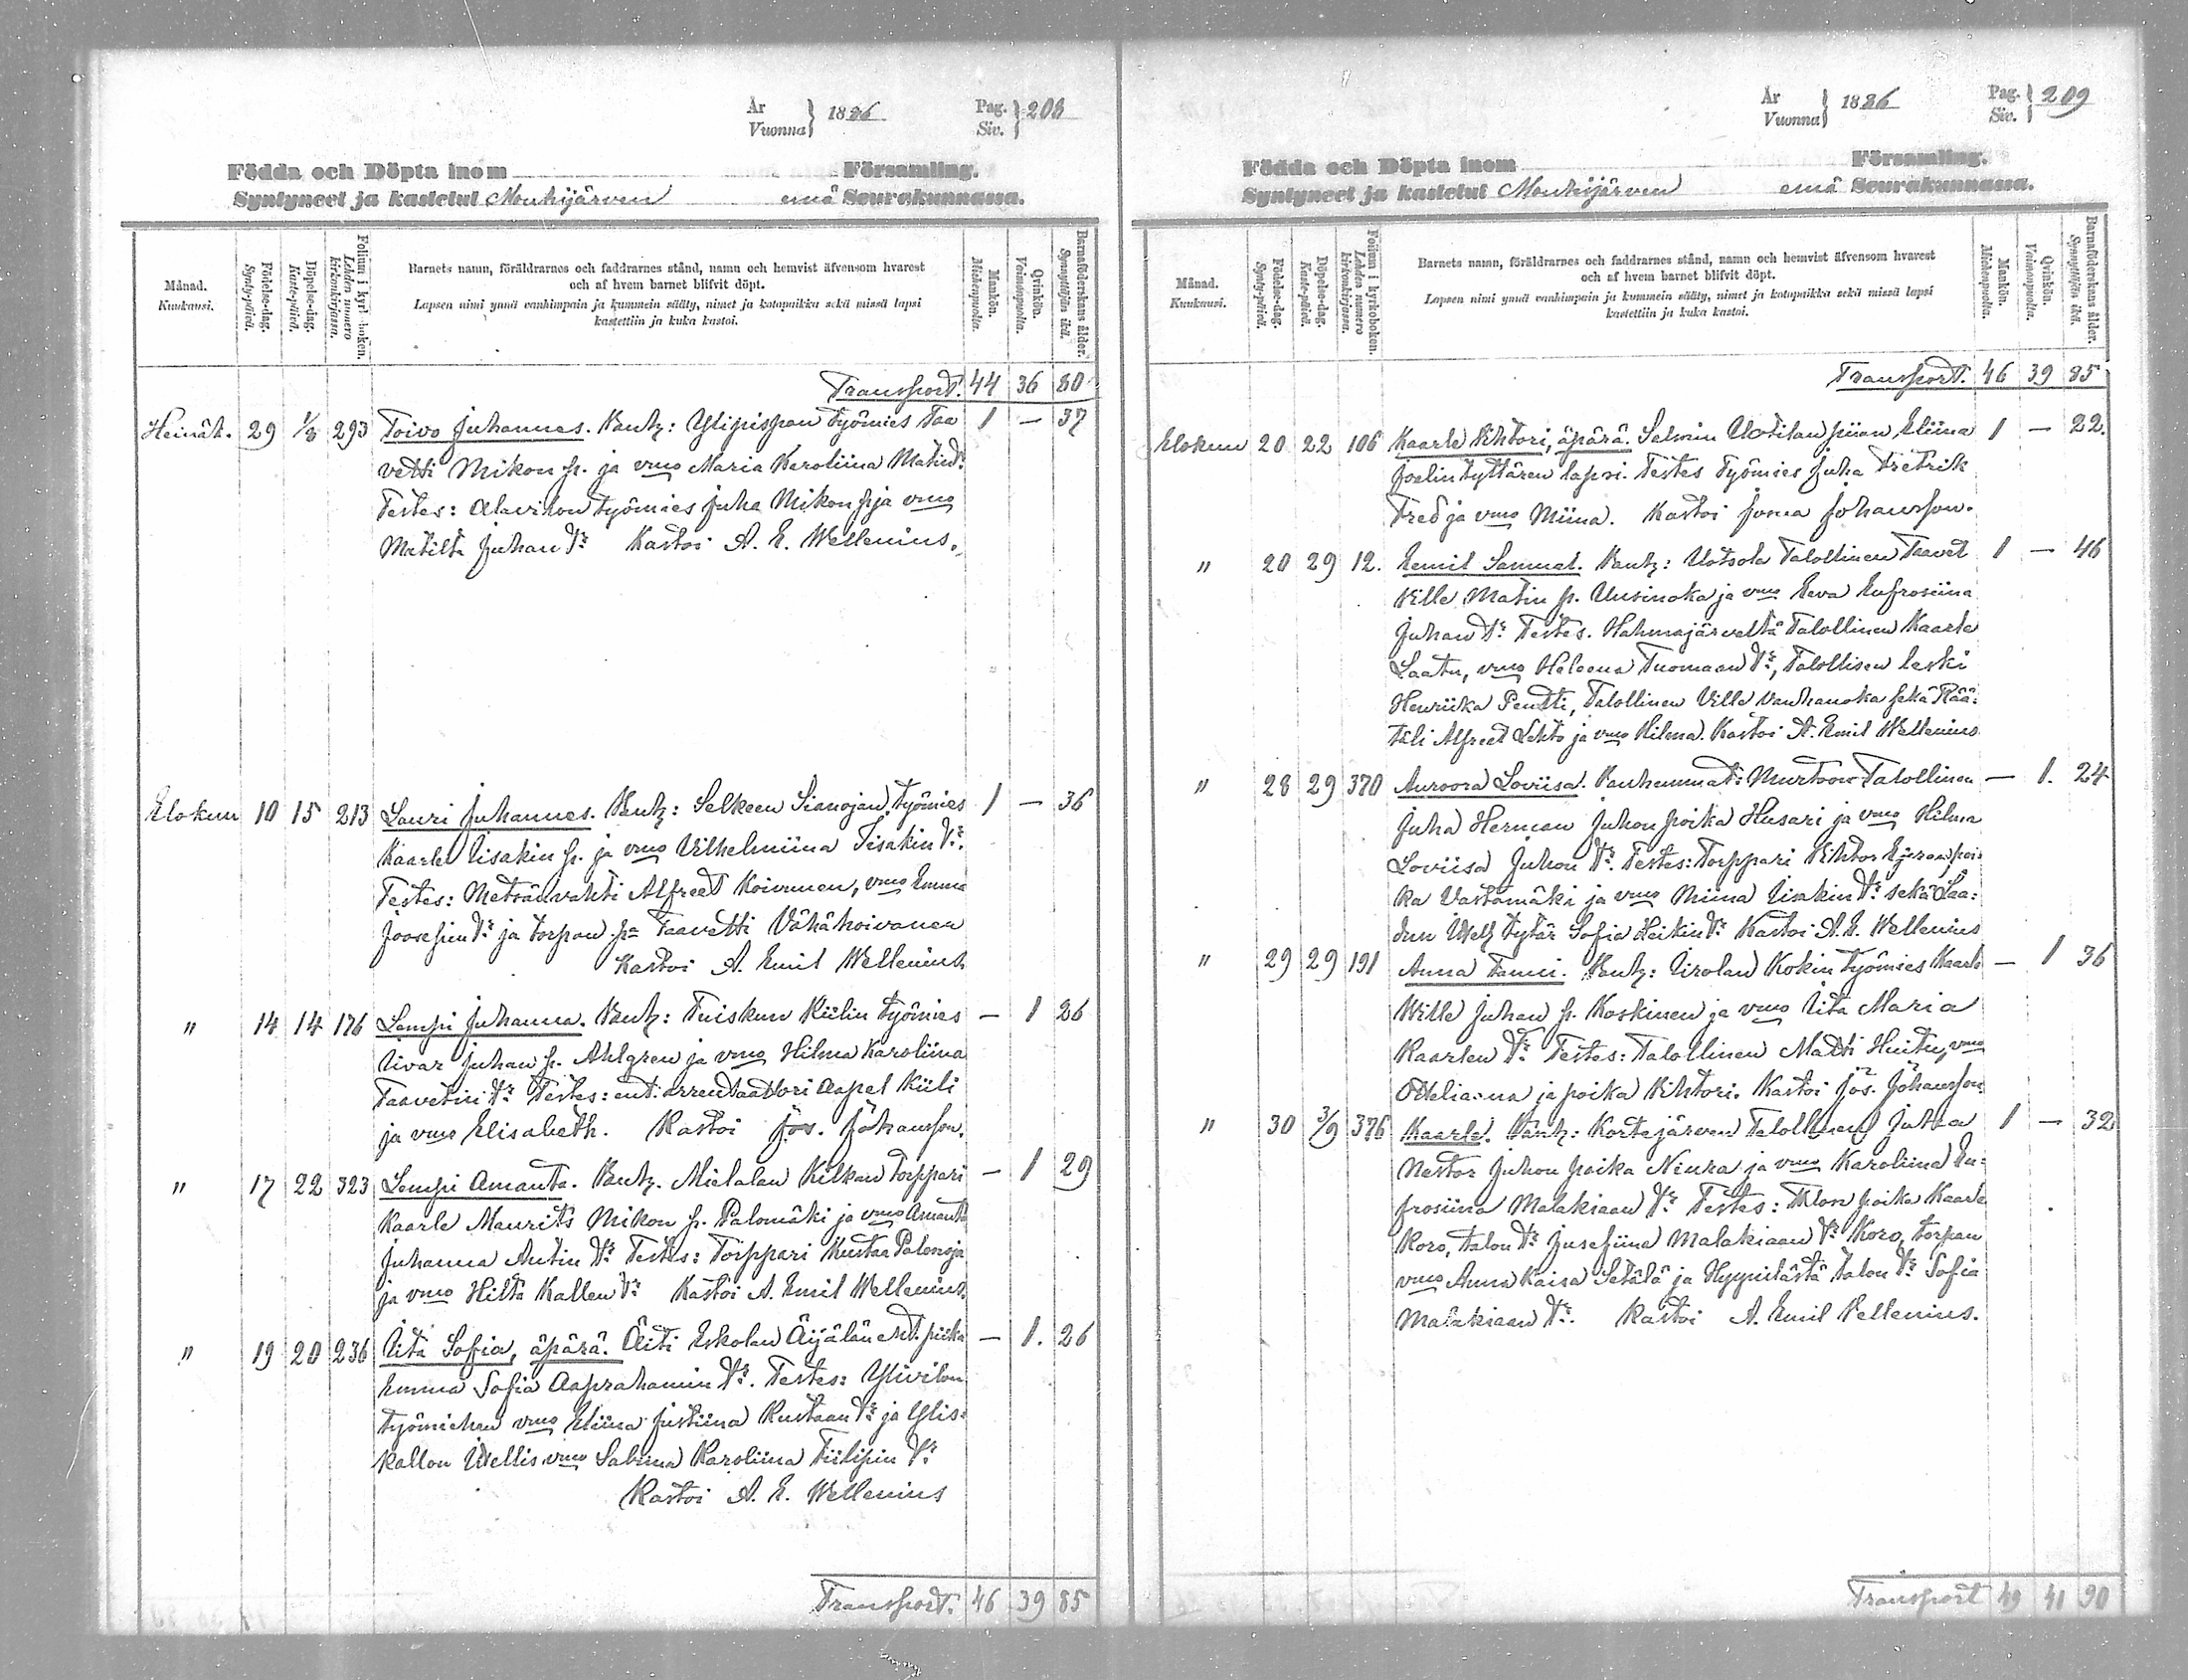 År
Vuonna } 1886
Pag.
Siv. } 208
Födda och Döpta inom Församling.
Syntyneet ja kastetut Mouhijärven emä Seurakunnassa.
Månad.
Kuukausi.
Födelse-dag.
Synty-päivä.
Döpelse-dag.
Kaste-päivä.
Folium i kyrkoboken.
Lehden numero kirkonkirjassa.
Barnets namn, föräldrarnes och faddrarnes stånd, namn och hemvist äfvensom hvarest
och af hvem barnet blifvit döpt.
Lapsen nimi ynnä vanhimpain ja kummein sääty, nimet ja kotopaikka sekä missä lapsi
kastettiin ja kuka kastoi.
Mankön.
Miehenpuolia.
Qvinkön.
Vaimonpuolia.
Barnaföderskans ålder.
Synnyttäjän ikä.
Transport. 44 36 80
Heinäk. 29 1/8 293 Toivo Juhannes. Vanh: Ylipispan työmies Taa 1 — 37
vetti Mikon p. ja vmo Maria Karoliina Matint:
Testes: Alavilon työmies Juha Mikon p ja vmo
Matilta Juhan tr Kastoi A. E. Wellenius.
Elokun 10 15 213 Lauri Juhannes. Vanh: Selkeen Sianojan työmies 1 — 36
Kaarle Iisakin p. ja vmo Vilhelmiina Iisakin tr.
Testes: Metsänvahti Alfreet Koivunen, vmo Emma
Joosepin tr ja torpan pa Taavetti Vähäkoivanen
Kastoi A. Emil Wellenius.
" 14 14 176 Lempi Juhanna. Vanh: Tuiskun Kiilin työmies — 1 26
Iivar Juhan p. Ahlgren ja vmo Hilma Karoliina
Taavetin tr Testes: ent. arrentaattori Aapel Kiili
ja vmo Elisabeth. Kastoi Jos. Johansson.
" 17 22 323 Lempi Amanta. Vanh. Mielalan Kilkun Torppari — 1 29
Kaarle Maurits Mikon p. Palomäki ja vmo Amanta
Juhanna Antin tr Testes: Torppari Kustaa Palonoja
ja vmo Hilta Kallen tr Kastoi A. Emil Wellenius.
" 19 20 236 Iita Sofia, äpärä. Äiti Eskolan Äijälän ent. piika — 1. 26
Emma Sofia Aaprahamin tr. Testes: Ylivilon
työmiehen vmo Eliina Justiina Kustaan tr ja Ylis-
kallon Itsellis vmo Sabina Karoliina Fiilipin tr
Kastoi A. E. Wellenius
Transport. 46 39 85
År
Vuonna } 1886
Pag.
Siv. } 209
Födda och Döpta inom Församling.
Syntyneet ja kastetut Mouhijärven emä Seurakunnassa.
Månad.
Kuukausi.
Födelse-dag.
Synty-päivä.
Döpelse-dag.
Kaste-päivä.
Folium i kyrkoboken.
Lehden numero kirkonkirjassa.
Barnets namn, föräldrarnes och faddrarnes stånd, namn och hemvist äfvensom hvarest
och af hvem barnet blifvit döpt.
Lapsen nimi ynnä vanhimpain ja kummein sääty, nimet ja kotopaikka sekä missä lapsi
kastettiin ja kuka kastoi.
Mankön.
Miehenpuolia.
Qvinkön.
Vaimonpuolia.
Barnaföderskans ålder.
Synnyttäjän ikä.
Transport. 46 39 85
Elokun 20 22 106 Kaarle Vihtori, äpärä. Salmin Uotilan piian Eliina 1 — 22.
Joelin tyttären lapsi. Testes Työmies Juha Fretrik
Fred ja vmo Miina. Kastoi Johansson.
" 20 29 12. Eemil Samuel. Vanh: Uotsola Talollinen Taavet 1 — 46
Ville Matin p. Uusinoka ja vmo Eeva Eufrosiina
Juhan tr Testes. Hahmajärveltä Talollinen Kaarle
Laatu, vmo Heleena Tuomaan tr, Talollisen leski
Henriika Pentti, Talollinen Ville Vanhanoka sekä Rää-
täli Alfreet Lehto ja vmo Hilma. Kastoi A. Emil Wellenius
" 28 29 370 Auroora Loviisa. Vanhemmat: Murtoon Talollinen — 1. 24
Juha Herman Juhon poika Husari ja vmo Hilma
Loviisa Juhon tr. Testes: Torppari Vihtor poi-
ka Vastamäki ja vmo Miina Iisakin tr sekä Laa-
dun Itsell tytär Sofia Heikin tr Kastoi A. E. Wellenius
" 29 29 191 Anna Fanni. Vanh: Iirolan Kokin työmies Kaarle — 1 36
Wille Juhan p. Koskinen ja vmo Iita Maria
Kaarlen tr Testes: Talollinen Matti Huitu, vmo
Otteliaana ja poika Vihtori. Kastoi Jos. Johansson.
" 30 3/9 376 Kaarle. Vanh: Kortejärven Talollinen Juha 1 — 32
Nestor Juhon poika Niura ja vmo Karoliina Eu-
frosiina Malakiaan tr Testes: Talon poika Kaarle
Koro, talon tr Jusefiina Malakiaan tr Koro, torpan
vmo Anna Kaisa Setälä ja Hyynilästä talon tr Sofia
Malakiaan tr. Kastoi A. Emil Vellenius.
Transport 49 41 90